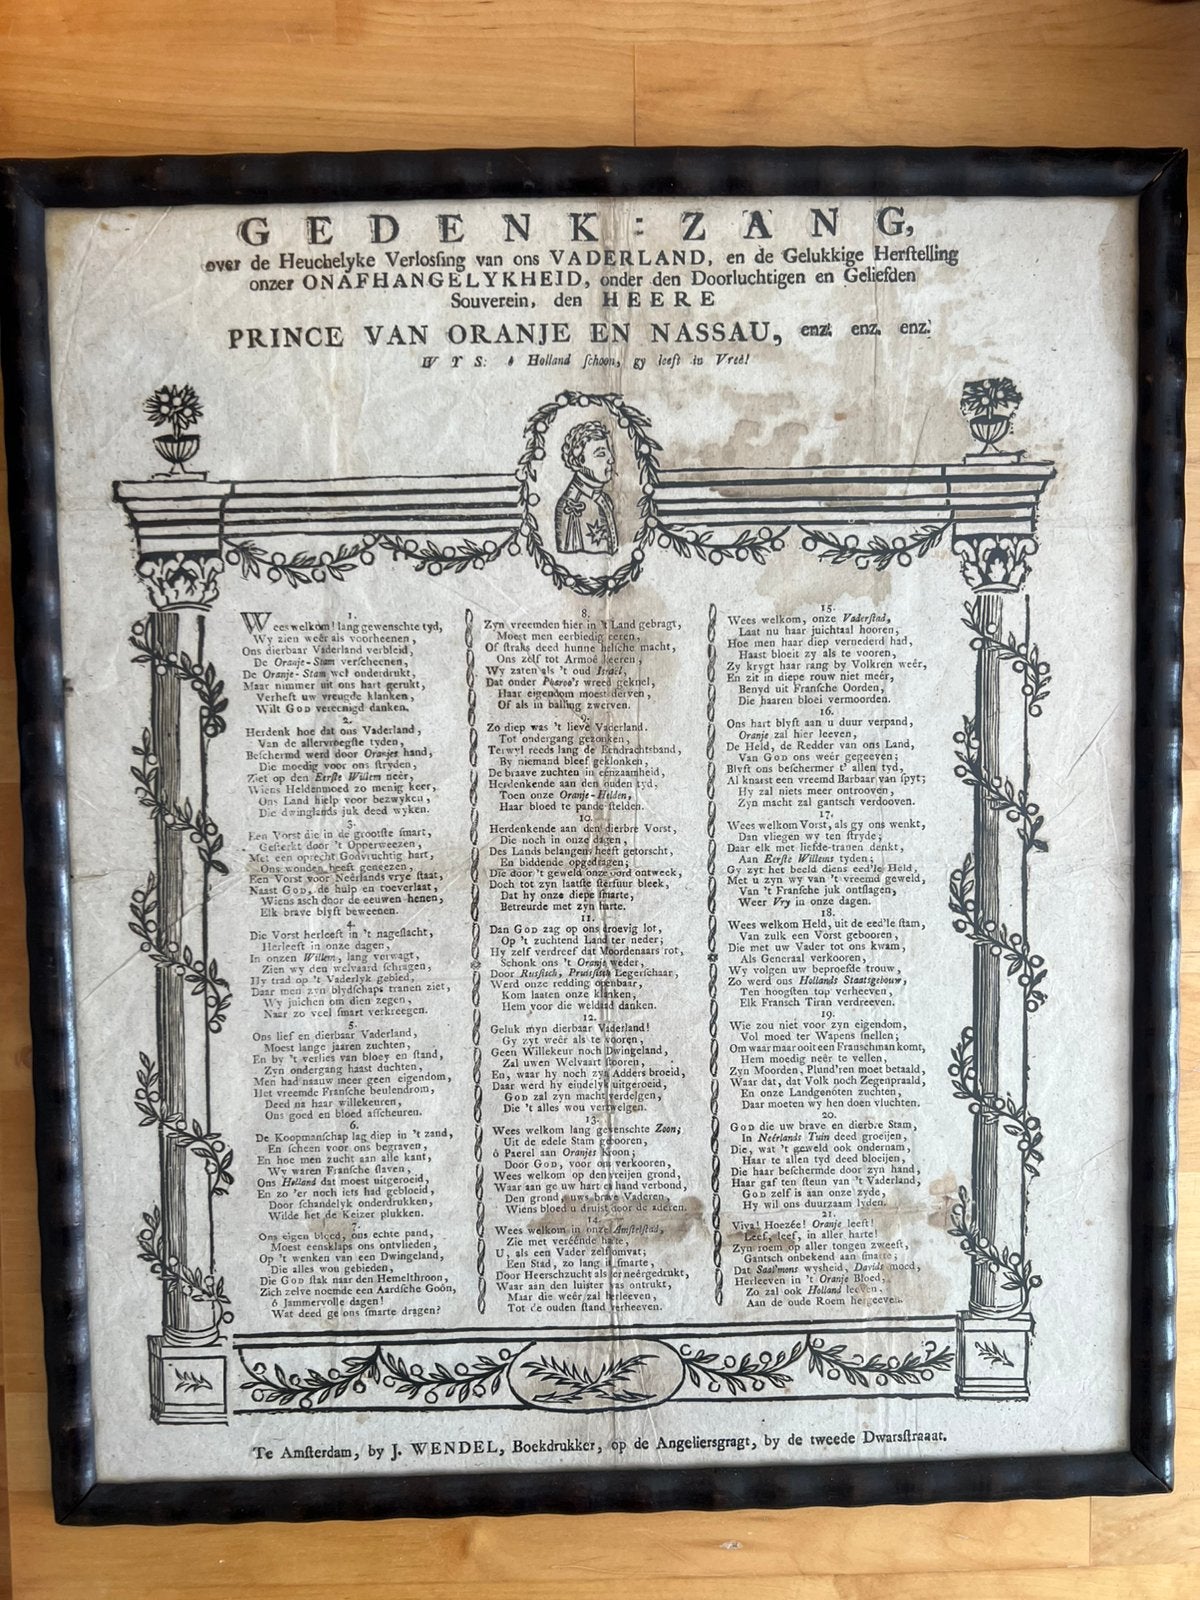 GEDENK-ZANG,
over de Heuchelyke Verlosſing van ons VADERLAND, en de Gelukkige Herſtelling
onzer ONAFHANGELYKHEID, onder den Doorluchtigen en Geliefden
Souverein, den HEERE
PRINCE VAN ORANJE EN NASSAU, enz. enz. enz.
WYS: ô Holland ſchoon, gy leeft in Vreê!
1.
Wees welkom! lang gewenschte tyd,
Wy zien weêr als voorheenen,
Ons dierbaar Vaderland verbleid,
De Oranje-Stam verſcheenen,
De Oranje-Stam wel onderdrukt,
Maar nimmer uit ons hart gerukt,
Verheft uw vreugde klanken,
Wilt GOD vereenigd danken.
2.
Herdenk hoe dat ons Vaderland,
Van de allervroegſte tyden,
Beſchermd werd door Oranjes hand,
Die moedig voor ons ſtryden,
Ziet op den Eerſte Willem neêr,
Wiens Heldenmoed zo menig keer,
Ons Land hielp voor bezwyken,
Die dwinglands juk deed wyken.
3.
Een Vorst die in de grootſte ſmart,
Geſterkt door 't Opperweezen,
Met een oprecht Godvruchtig hart,
Ons wonden heeft geneezen,
Een Vorst voor Neêrlands vrye ſtaat,
Naast GOD, de hulp en toeverlaat,
Wiens asch door de eeuwen henen,
Elk brave blyft beweenen.
4.
Die Vorst herleeft in 't nageſlacht,
Herleeft in onze dagen,
In onzen Willem, lang verwagt,
Zien wy den welvaard ſchragen,
Hy trad op 't Vaderlyk gebied,
Daar men zyn blydſchaps tranen ziet,
Wy juichen om dien zegen,
Naar zo veel ſmart verkreegen.
5.
Ons lief en dierbaar Vaderland,
Moest lange jaaren zuchten,
En by 't verlies van bloey en ſtand,
Zyn ondergang haast duchten,
Men had naauw meer geen eigendom,
Het vreemde Franſche beulendrom,
Deed na haar willekeuren,
Ons goed en bloed afſcheuren.
6.
De Koopmanſchap lag diep in 't zand,
En ſcheen voor ons begraven,
En hoe men zucht aan alle kant,
Wy waren Franſche ſlaven,
Ons Holland dat moest uitgeroeid,
En zo 'er noch iets had gebloeid,
Door ſchandelyk onderdrukken,
Wilde het de Keizer plukken.
7.
Ons eigen bloed, ons echte pand,
Moest eensklaps ons ontvlieden,
Op 't wenken van een Dwingeland,
Die alles wou gebieden,
Die GOD ſtak naar den Hemelthroon,
Zich zelve noemde een Aardſche Goôn,
ô Jammervolle dagen!
Wat deed ge ons ſmarte dragen?
8.
Zyn vreemden hier in 't Land gebragt,
Moest men eerbiedig eeren,
Of ſtraks deed hunne helſche macht,
Ons zelf tot Armoê keeren,
Wy zaten als 't oud Israël,
Dat onder Pharao's wreed geknel,
Haar eigendom moest derven,
Of als in balling zwerven.
9.
Zo diep was 't lieve Vaderland.
Tot ondergang gezonken,
Terwyl reeds lang de Eendrachtsband,
By niemand bleef geklonken,
De braave zuchten in eenzaamheid,
Herdenkende aan den ouden tyd,
Toen onze Oranje-Helden,
Haar bloed te pande ſtelden.
10.
Herdenkende aan den dierbre Vorst,
Die noch in onze dagen,
Des Lands belangen heeft getorscht,
En biddende opgedragen;
Die door 't geweld onze oord ontweek,
Doch tot zyn laatſte ſterfuur bleek,
Dat hy onze diepe ſmarte,
Betreurde met zyn harte.
11.
Dan GOD zag op ons droevig lot,
Op 't zuchtend Land ter neder;
Hy zelf verdreef dat Moordenaars rot,
Schonk ons 't Oranje weder,
Door Rusſisch, Pruisſisch Legerſchaar,
Werd onze redding openbaar,
Kom laaten onze klanken,
Hem voor die weldaad danken.
12.
Geluk myn dierbaar Vaderland!
Gy zyt weêr als te vooren,
Geen Willekeur noch Dwingeland,
Zal uwen Welvaart ſtooren,
En, waar hy noch zyn Adders broeid,
Daar werd hy eindelyk uitgeroeid,
GOD zal zyn macht verdelgen,
Die 't alles wou verzwelgen.
13.
Wees welkom lang gewenschte Zoon;
Uit de edele Stam gebooren,
ô Paerel aan Oranjes Kroon;
Door GOD, voor ons verkooren,
Wees welkom op den vreijen grond,
Waar aan ge uw hart en hand verbond,
Den grond, uws brave Vaderen,
Wiens bloed u druist door de aderen.
14.
Wees welkom in onze Amſtelſtad,
Zie met veréénde harte,
U, als een Vader zelf omvat;
Een Stad, zo lang in ſmarte,
Door Heerschzucht als ter neêrgedrukt,
Waar aan den luister was ontrukt,
Maar die weêr zal herleeven,
Tot de ouden ſtand verheeven.
15.
Wees welkom, onze Vaderſtad,
Laat nu haar juichtaal hooren,
Hoe men haar diep vernederd had,
Haast bloeit zy als te vooren,
Zy krygt haar rang by Volkren weêr,
En zit in diepe rouw niet meêr,
Benyd uit Franſche Oorden,
Die haaren bloei vermoorden.
16.
Ons hart blyft aan u duur verpand,
Oranje zal hier leeven,
De Held, de Redder van ons Land,
Van GOD ons weêr gegeeven;
Blyft ons beſchermer t' allen tyd,
Al knarst een vreemd Barbaar van ſpyt;
Hy zal niets meer ontrooven,
Zyn macht zal gantsch verdooven.
17.
Wees welkom Vorst, als gy ons wenkt,
Dan vliegen wy ten ſtryde;
Daar elk met liefde-tranen denkt,
Aan Eerſte Willems tyden;
Gy zyt het beeld diens eed'le Held,
Met u zyn wy van 't vreemd geweld,
Van 't Franſche juk ontſlagen,
Weer Vry in onze dagen.
18.
Wees welkom Held, uit de eed'le ſtam,
Van zulk een Vorst gebooren,
Die met uw Vader tot ons kwam,
Als Generaal verkooren,
Wy volgen uw beproefde trouw,
Zo werd ons Hollands Staatsgebouw,
Ten hoogſten top verheeven,
Elk Fransch Tiran verdreeven.
19.
Wie zou niet voor zyn eigendom,
Vol moed ter Wapens ſnellen;
Om waar maar ooit een Franschman komt,
Hem moedig neêr te vellen,
Zyn Moorden, Plund'ren moet betaald,
Waar dat, dat Volk noch Zegenpraald,
En onze Landgenoten zuchten,
Daar moeten wy hen doen vluchten.
20.
GOD die uw brave en dierbre Stam,
In Neêrlands Tuin deed groeijen,
Die, wat 't geweld ook ondernam,
Haar te allen tyd deed bloeijen,
Die haar beſchermde door zyn hand,
Haar gaf ten ſteun van 't Vaderland,
GOD zelf is aan onze zyde,
Hy wil ons duurzaam lyden.
21.
Viva! Hoezée! Oranje leeft!
Leef, leef, in aller harte!
Zyn roem op aller tongen zweeft,
Gantsch onbekend aan ſmarte;
Dat Saal'mons wysheid, Davids moed,
Herleeven in 't Oranje Bloed,
Zo zal ook Holland leeven,
Aan de oude Roem hergeeven.
Te Amſterdam, by J. WENDEL, Boekdrukker, op de Angeliersgragt, by de tweede Dwarsſtraaat.